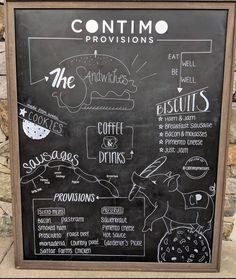 CONTIMO
PROVISIONS
EAT
WELL
BE
WELL
The
Sandwiches
BISCUITS
* Ham & JAM
* Breakfast Sausage
* Bacon & molasses
* Pimento Cheese
* Just Jam
COOKIES
COFFEE
&
DRINKS
Sausages
PROVISIONS
Sliced Meats
Bacon pastrami
Smoked ham
Prosciutto roast beef
mortadella country pate
Sauerkraut
Pimento Cheese
Hot Sauce
Gardener's Pickle